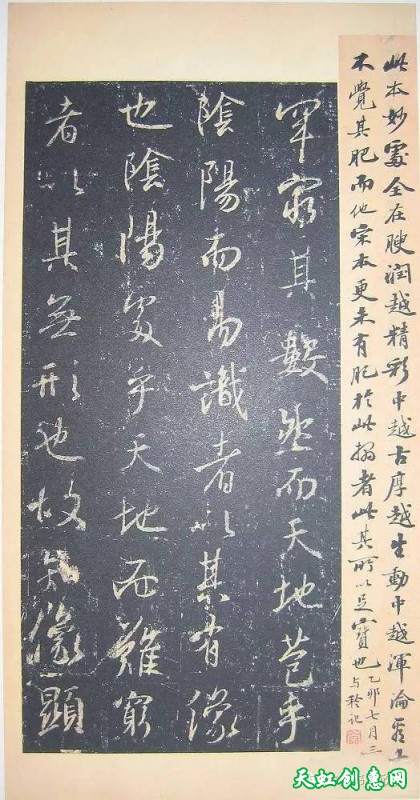 此本妙處全在腴潤越精彩中越古厚越生動中越渾淪
不覺其肥而他宋本更未有肥於此搨者此其所以足寶也
乙卯七月三
罕窮其數然而天地苞乎
陰陽而易識者以其有像
也陰陽處乎天地而難窮
者以其無形也故知像顯
天虹创意网